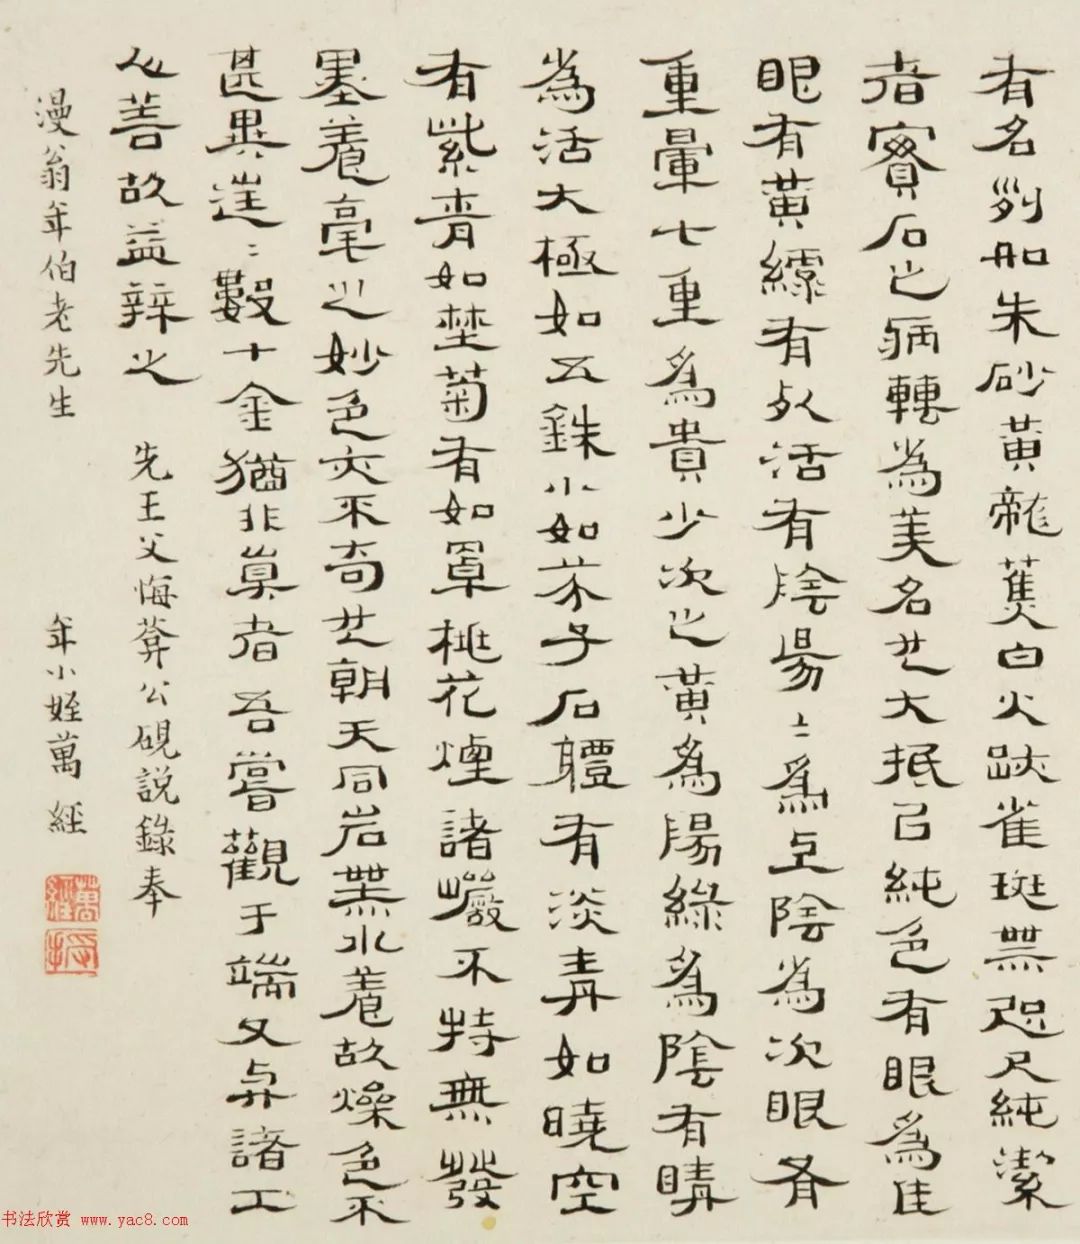 有名列如朱砂黃龍蕉白火跌雀斑無咫尺純潔
者寶石之病轉為美名也大抵以純色有眼為佳
眼有黃縹有死活有陰陽陽為上陰為次眼有
重暈七重為貴少次之黃為陽綠為陰有睛
為活大極如五銖小如芥子石體有淡青如曉空
有紫青如楚菊有如罩桃花煙諸巖不特無發
墨養毫之妙色亦不奇也朝天同岩無水養故燥色不
甚異遂數十金猶非真者吾嘗觀于端又與諸工
人善故益辨之
先王父悔菴公硯說錄奉
漫翁年伯老先生
年小姪萬經
萬經
书法欣赏 www.yac8.com